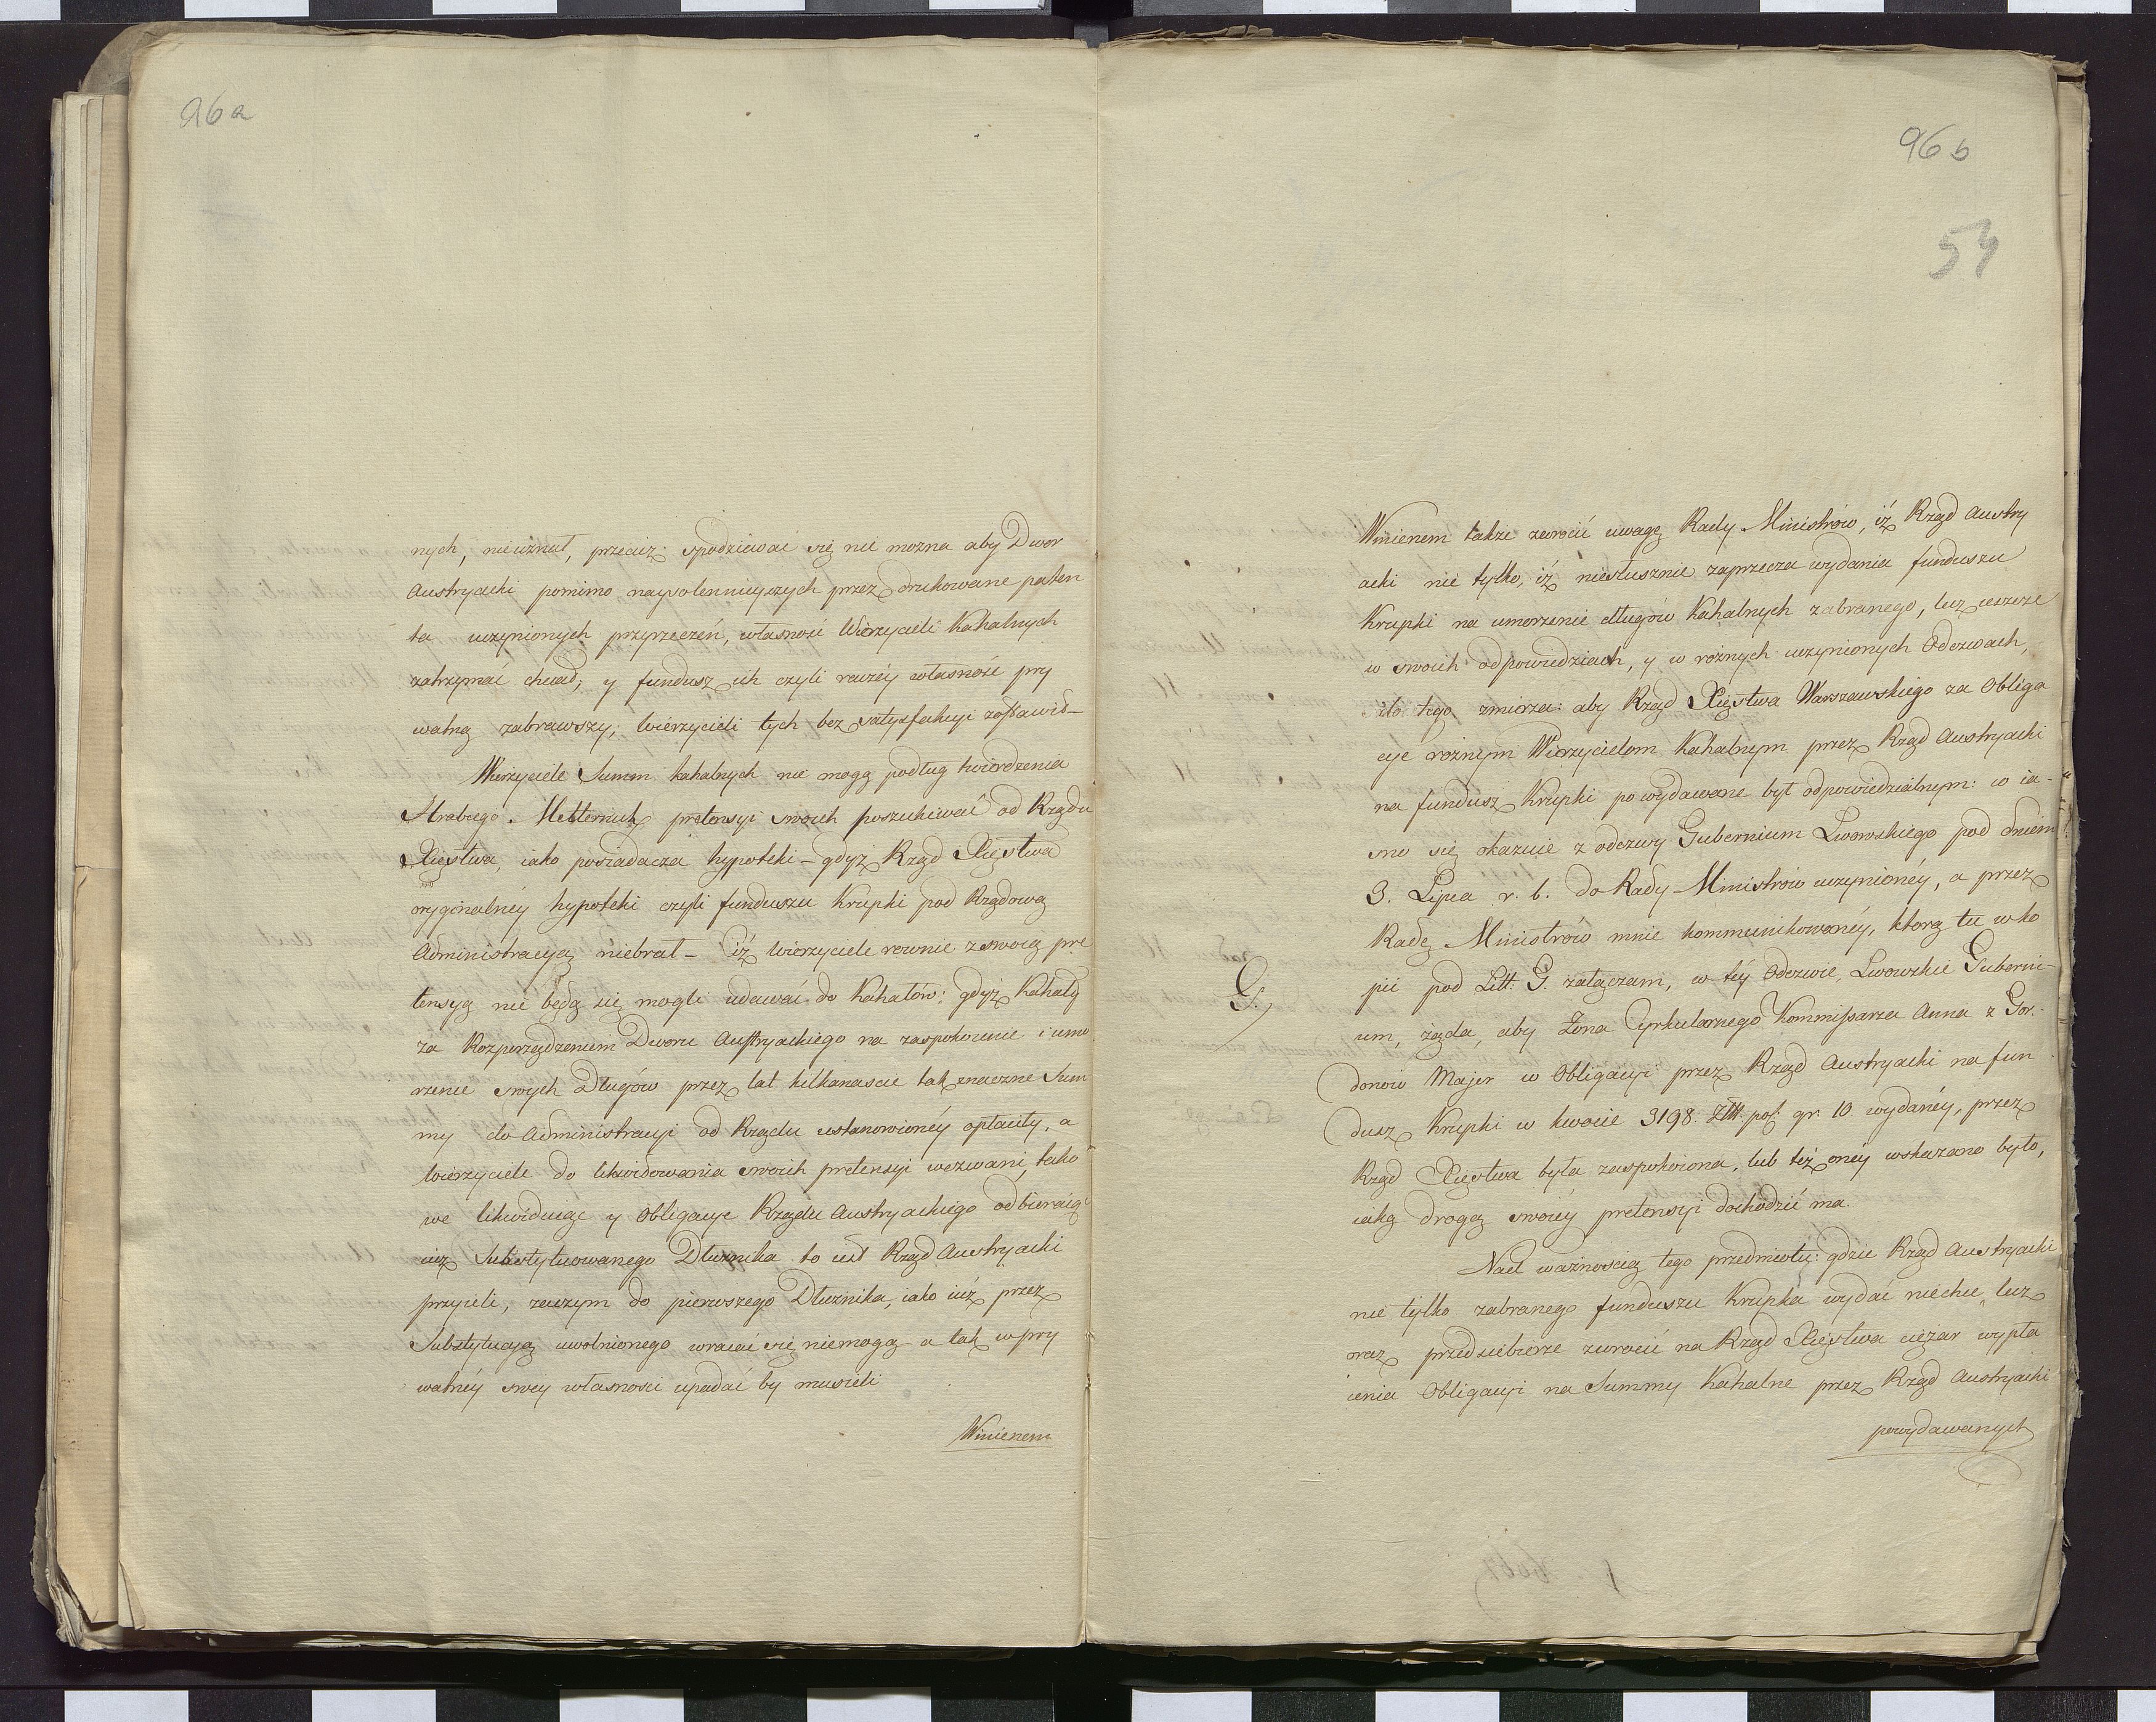 96a
nych, nieuznał, przecież spodziewać się nie można aby Dwor
Austryacki pomimo naysolennieyszych przez drukowane paten
ta uczynionych przyrzeczeń, własność Wierzycieli Kahalnych
zatrzymać chciał, y fundusz ich czyli raczéy własność pry
watną zabrawszy; Wierzycieli tych bez satysfakcyi zostawił–
Wierzyciele Summ kahalnych nie mogą podług twierdzenia
Hrabiego Metternich pretensyi swoich poszukiwać od Rządu
Xięstwa, iako posiadacza hypoteki – gdyż Rząd Xięstwa
oryginalnéy hypoteki czyli funduszu Krupki pod Rządową
Administracyą niebrał – iż Wierzyciele rownie z swoią pre
tensyą nie będą się mogli udawać do Kahałów; gdyż Kahały
za Rozporządzeniem Dworu Austryackiego na zaspokoienie i umo
rzenie swych Długów przez lat kilkanascie tak znaczne Sum
my do Administracyi od Rządu ustanowionéy opłaciły, a
Wierzyciele do likwidowania swoich pretensyi wezwani, tako
we likwiduiąc y Obligacye Rządu Austryackiego odbieraiąc
iuż Substytuowanego Dłużnika to iest Rząd Austryacki
przyieli, zaczym do pierwszego Dłużnika, iako iuż przez
Substytucyą uwolnionego wracać się niemogą – a tak w pry
watnéy swey własnosci upadać by musieli
Winienem
96 b
54
Winienem także zwrocić uwagę Rady Ministrów, iż Rząd Austry
acki nie tylko, iż niesłusznie zaprzecza wydania funduszu
Krupki na umorzenie długów Kahalnych zabranego, lecz ieszcze
w swoich odpowiedziach, y w rożnych uczynionych Odezwach,
do tego zmierza: aby Rząd Xięstwa Warszawskiego za Obliga
cye rożnym Wierzycielom Kahalnym przez Rząd Austryacki
na fundusz Krupki powydawane był odpowiedzialnym: co ia–
sno się okazuie z odezwy Gubernium Lwowskiego pod dniem
3. Lipca r. b. do Rady Ministrów uczynionéy, a przez
Radę Ministrów mnie kommunikowanéy, ktorą tu w ko
G.
pii pod Litt. G. załączam, w téy Odezwie, Lwowskie Guberni–
um, żąda, aby Żona Cyrkularnego Kommissarza Anna z Gor–
donow Majer w Obligacyi przez Rząd Austryacki na fun
dusz Krupki w kwocie 3198. Złł. pol. gr. 10 wydanéy, przez
Rząd Xięstwa była zaspokoiona, lub też onéy wskazano było,
iaką drogą swoiéy pretensyi dochodzić ma.
Nad ważnością tego przedmiotu: gdzie Rząd Austryacki
nie tylko zabranego funduszu Krupka wydać niechce, lecz
oraz przedsiebierze zwrocić na Rząd Xięstwa ciężar wypła
cenia Obligacyi na Summy Kahalne przez Rząd Austryacki
powydawanych